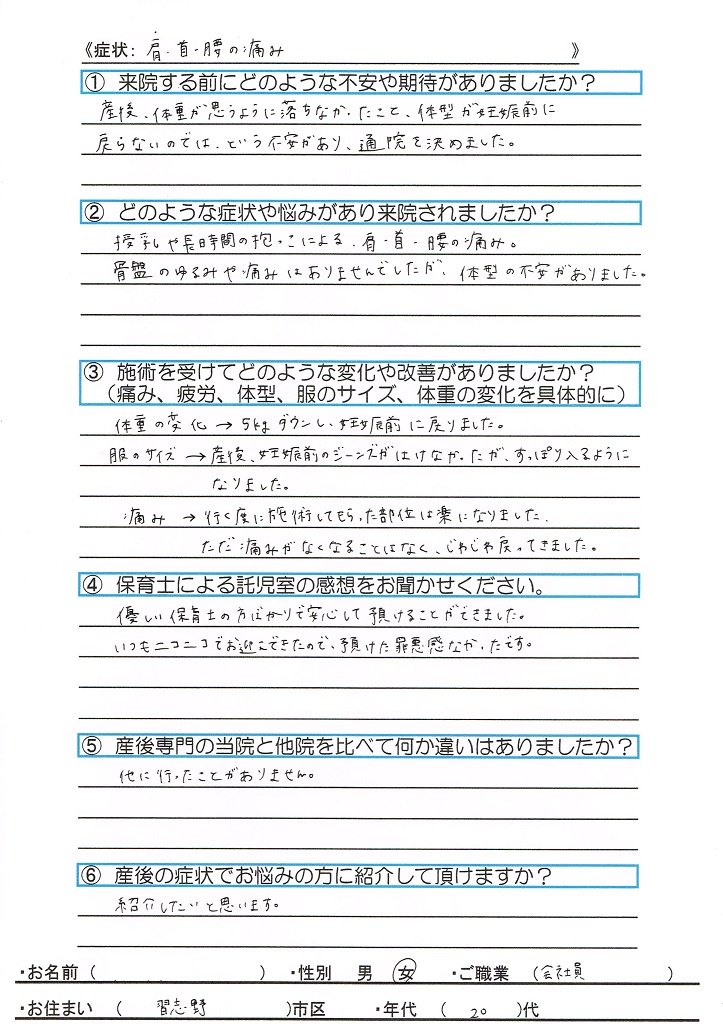 《症状: 肩・首・腰の痛み 》
① 来院する前にどのような不安や期待がありましたか？
産後、体重が思うように落ちなかったこと、体型が妊娠前に
戻らないのでは、という不安があり、通院を決めました。
② どのような症状や悩みがあり来院されましたか？
授乳や長時間の抱っこによる、肩・首・腰の痛み。
骨盤のゆるみや痛みはありませんでしたが、体型の不安がありました。
③ 施術を受けてどのような変化や改善がありましたか？
（痛み、疲労、体型、服のサイズ、体重の変化を具体的に）
体重の変化 → 5kgダウンし、妊娠前に戻りました。
服のサイズ → 産後、妊娠前のジーンズがはけなかったが、すっぽり入るように
なりました。
痛み → 行く度に施術してもらった部位は楽になりました。
ただ痛みがなくなることはなく、じわじわ戻ってきました。
④ 保育士による託児室の感想をお聞かせください。
優しい保育士の方ばかりで安心して預けることができました。
いつもニコニコでお迎えできたので、預けた罪悪感なかったです。
⑤ 産後専門の当院と他院を比べて何か違いはありましたか？
他に行ったことがありません。
⑥ 産後の症状でお悩みの方に紹介して頂けますか？
紹介したいと思います。
・お名前 （ ） ・性別 男 女 ・ご職業 （会社員 ）
・お住まい （ 習志野 ）市区 ・年代 （ 20 ）代